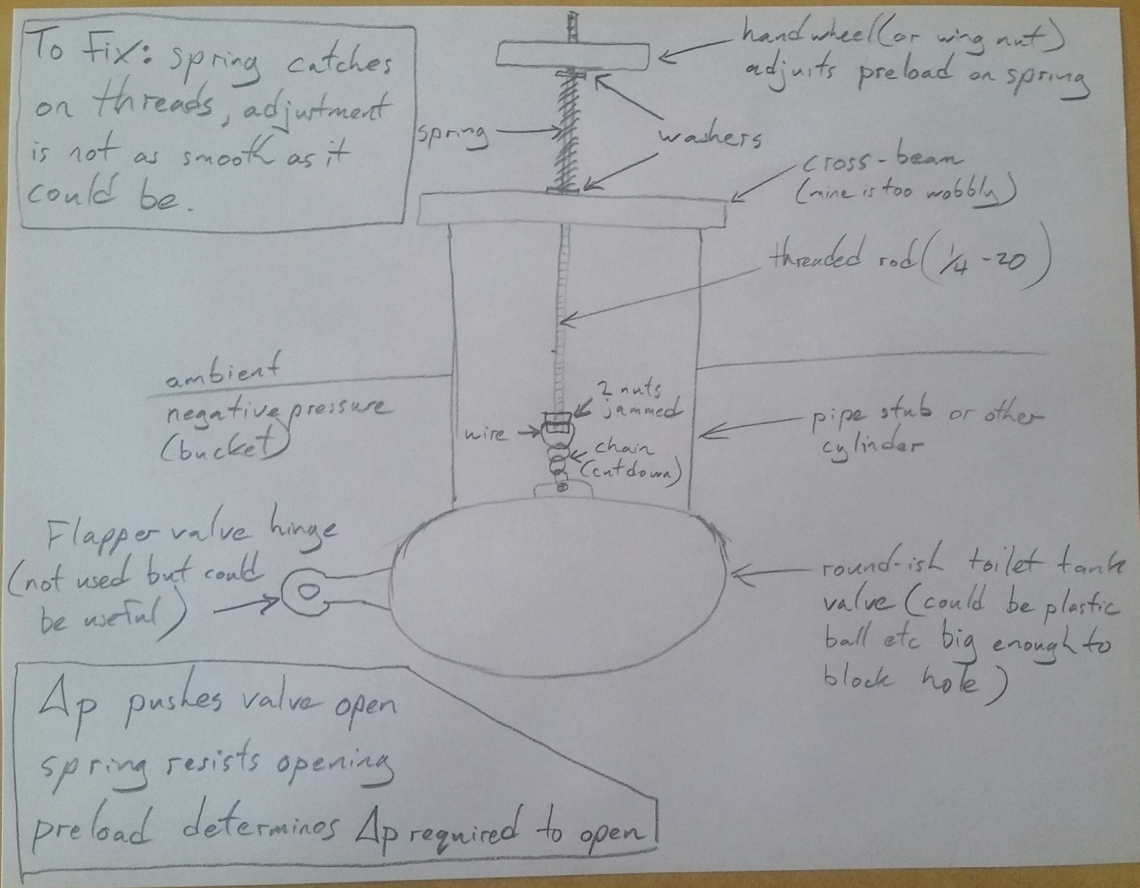 To Fix: spring catches
on threads, adjustment
is not as smooth as it
could be.
handwheel (or wing nut)
adjusts preload on spring
spring
washers
cross-beam
(mine is too wobbly)
threaded rod (1/4-20)
ambient
negative pressure
(bucket)
2 nuts
jammed
wire
chain
(cut down)
pipe stub or other
cylinder
Flapper valve hinge
(not used but could
be useful)
round-ish toilet tank
valve (could be plastic
ball etc big enough to
block hole)
Δp pushes valve open
spring resists opening
preload determines Δp required to open